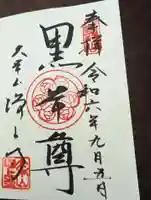 奉拝 令和六年九月五日
黒本尊
大本山増上寺